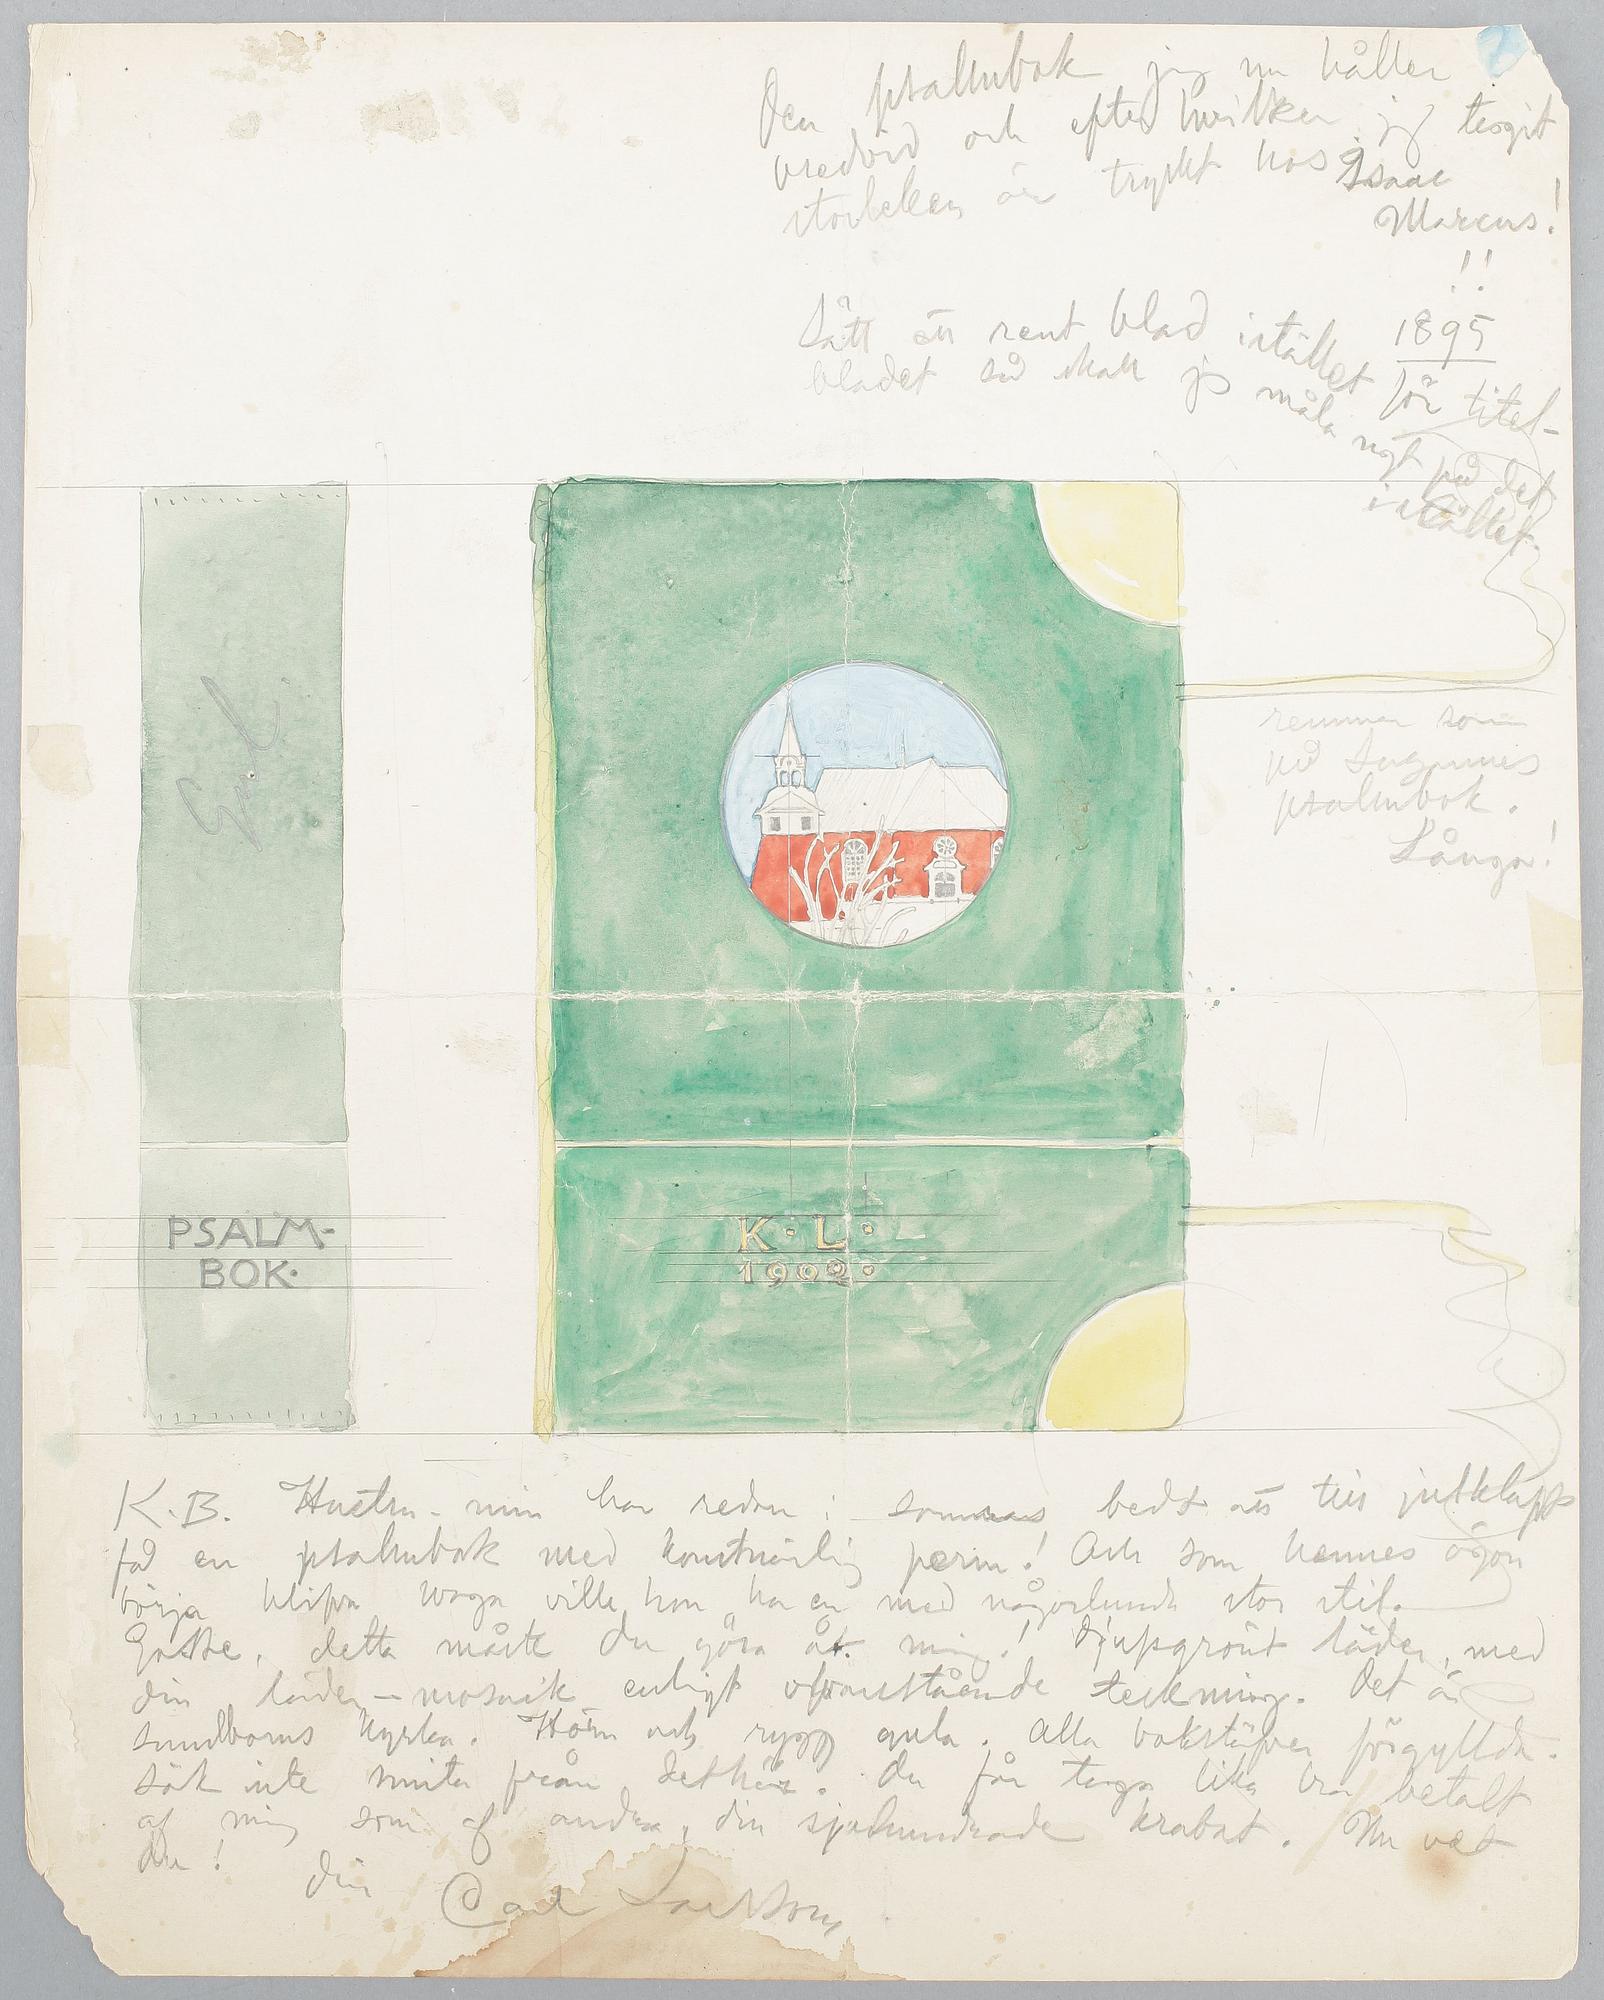 Den psalmbok jag nu håller
bredvid och efter hvilken jag tagit
storleken är tryckt hos Isaac
Marcus!
!!
1895
Sätt ett rent blad istället för titel-
bladet så skall jag måla ngt på det
istället.
remmar som
på Suzannes
psalmbok.
Långa!
Gul.
PSALM-
BOK·
K·L·
1902·
K.B. Hustru min har redan i somras bedt att till julklapp
få en psalmbok med konstnärlig perm! Och som hennes ögon
börja blifva svaga ville hon ha en med någorlunda stor stil.
Gosse, detta måste du göra åt mig! Djupgrönt läder, med
din läder-mosaik enligt ofvanstående teckning. Det är
Sundborns kyrka. Hörn och rygg gula. Alla bokstäfver förgyllda.
Sök inte smita från dethär. Du får taga lika bra betalt
af mig som af andra, din sjuhundrade krabat. Nu vet
du!
Din
Carl Larsson